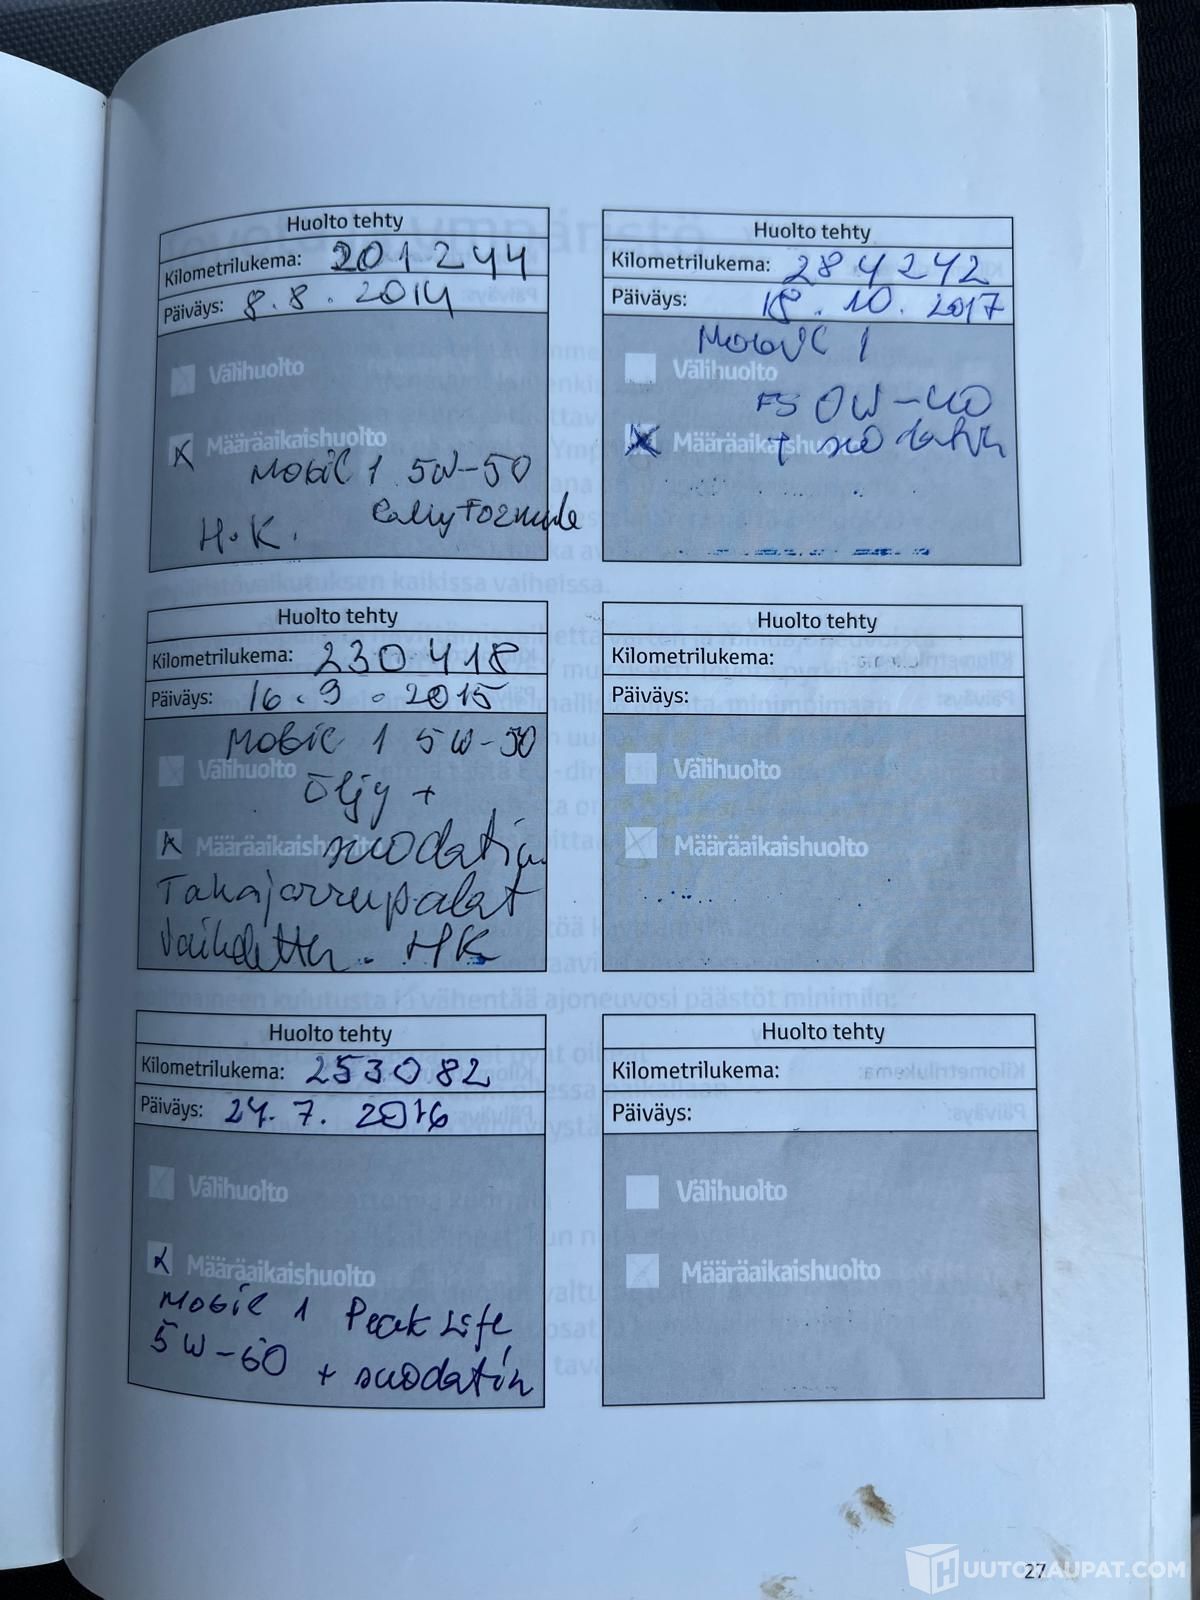 Huolto tehty
Kilometrilukema: 201244
Päiväys: 8.8.2014
Välihuolto
Määräaikaishuolto
Mobil 1 5W-50
Rally Formula
H.K.
Huolto tehty
Kilometrilukema: 230418
Päiväys: 16.9.2015
Mobil 1 5W-50
Välihuolto
Öljy +
Määräaikaishuolto suodatin
Takajarrupalat
Vaihdettu. HK
Huolto tehty
Kilometrilukema: 253082
Päiväys: 24.7.2016
Välihuolto
Määräaikaishuolto
Mobil 1 Peak Life
5W-50 + suodatin
Huolto tehty
Kilometrilukema: 284242
Päiväys: 18.10.2017
Mobil 1
Välihuolto
FS 0W-40
Määräaikaishuolto + suodatin
Huolto tehty
Kilometrilukema:
Päiväys:
Välihuolto
Määräaikaishuolto
Huolto tehty
Kilometrilukema:
Päiväys:
Välihuolto
Määräaikaishuolto
27
HUUTOKAUPAT.COM